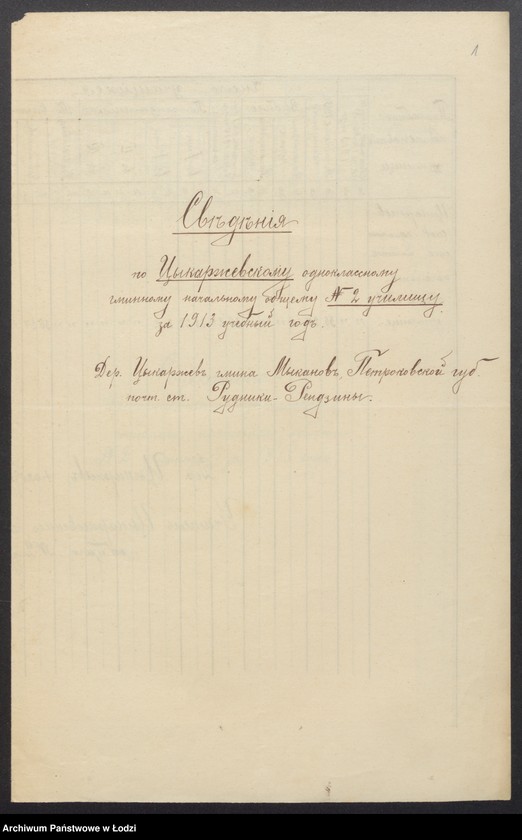 1
Свѣдѣнія
по Цыкаржевскому одноклассному
гминному начальному общему № 2 училищу
за 1913 учебный годъ.
Дер. Цыкаржевъ гмина Мыкановъ, Петроковской губ.
почт. ст. Рудники-Рендзины.
Archiwum Państwowe w Łodzi